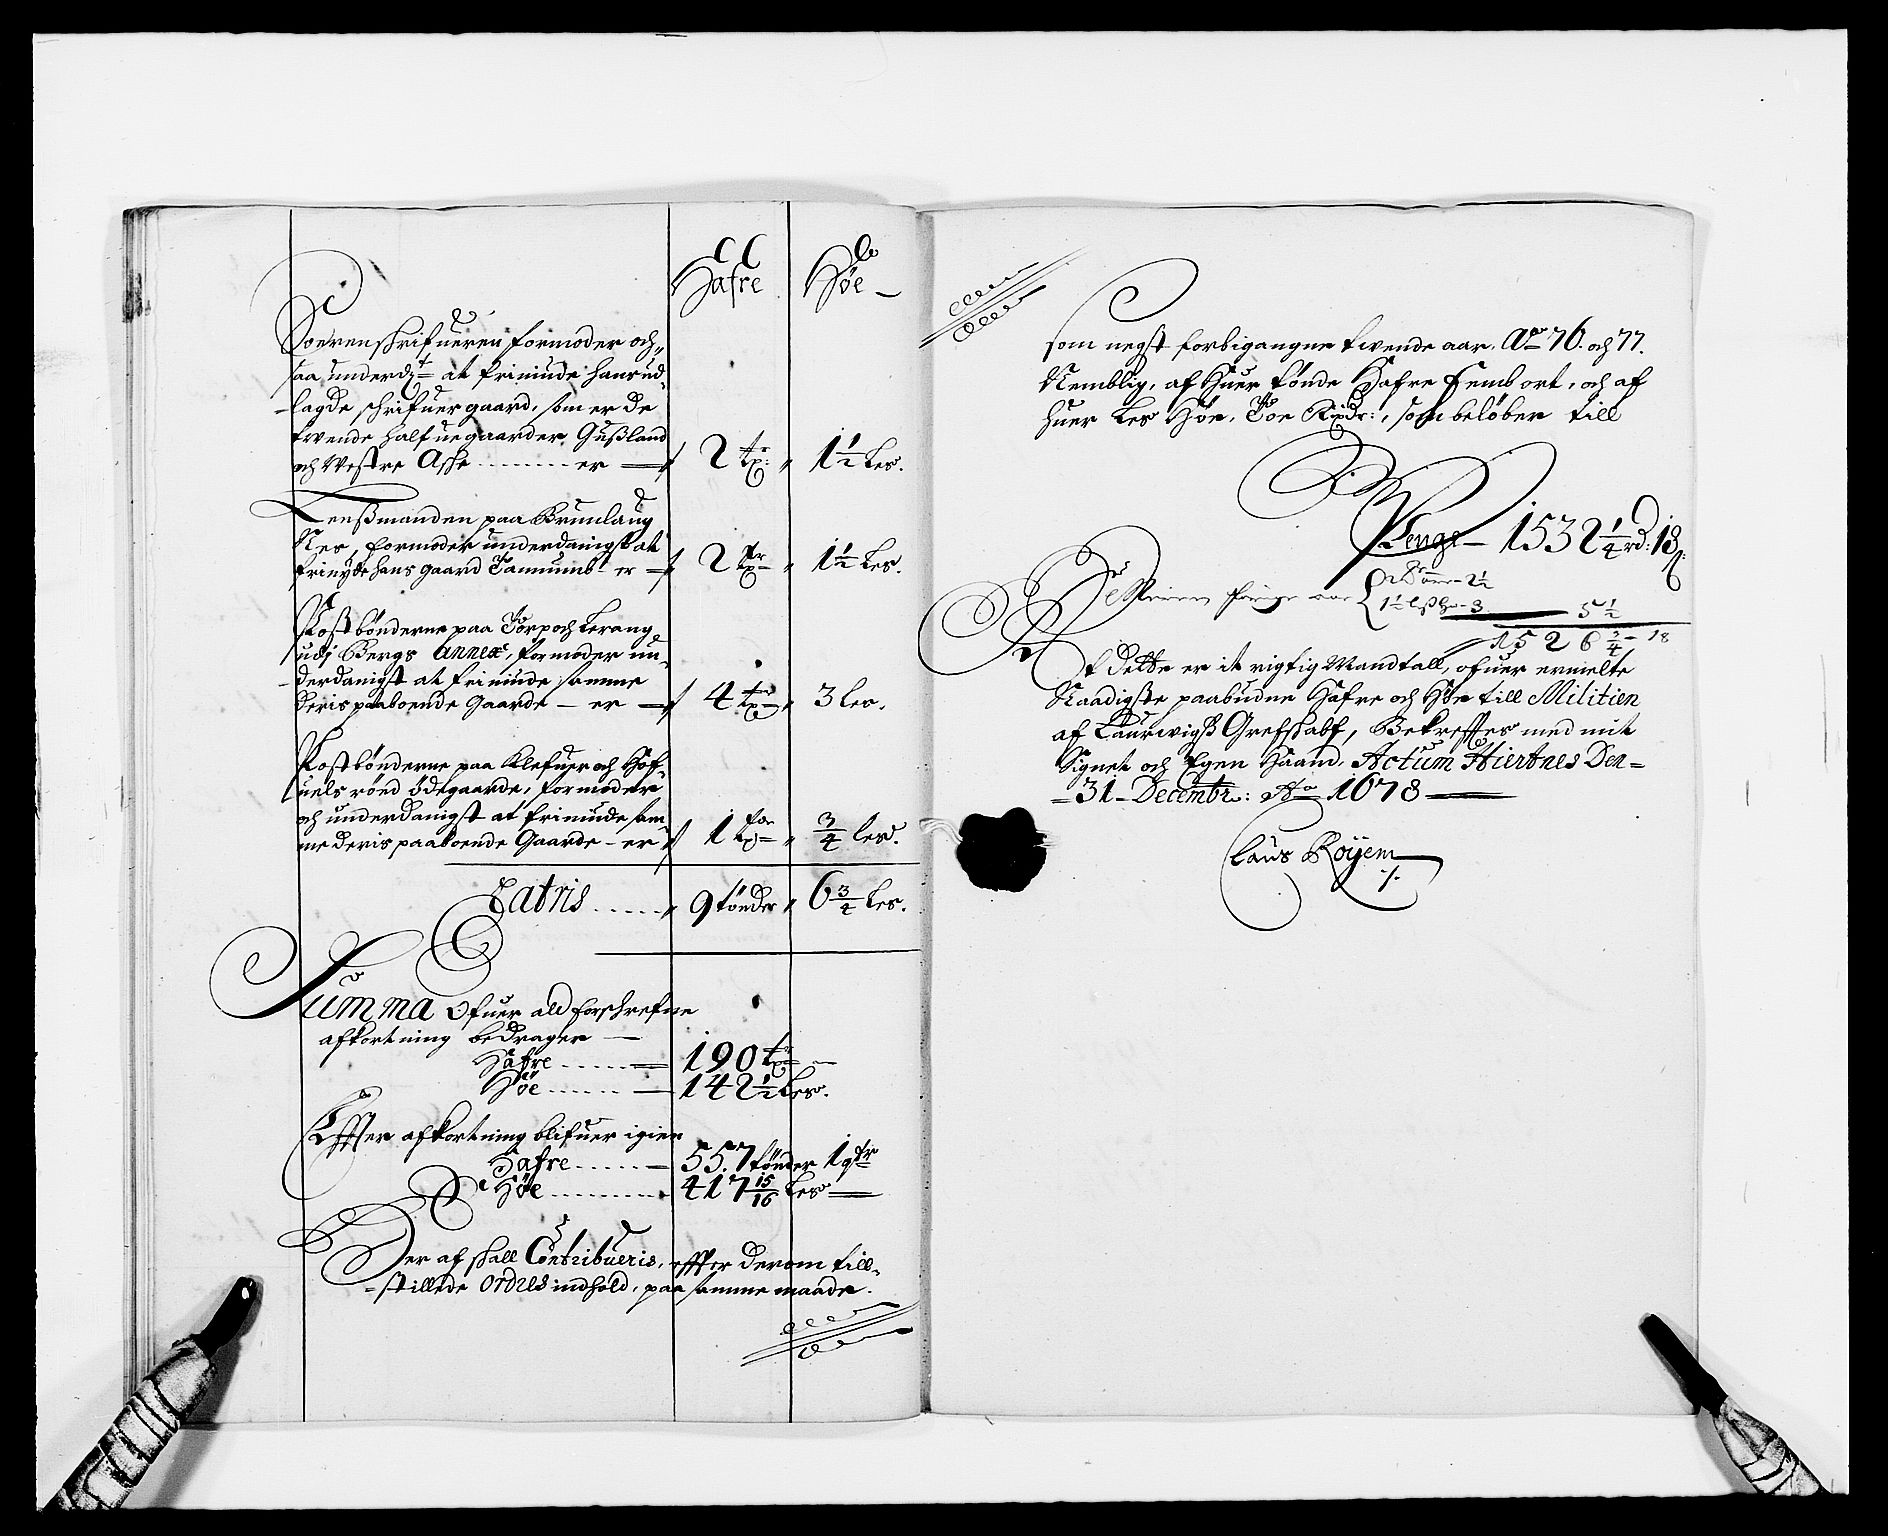 Hafre Høe
Sorenskrifueren formoder och„
saa underd:t at friniude hans ud„
lagde schrifuer gaard, som er de
tvende halfue gaarder Gusland
och Westre Aske ......... er — 2 tr: „ 1½ Les.
Lensmanden paa Brunlaug
Nes, formoder underdanigst at
frinyde hans gaard Tammumb - er — 2 tr „ 1½ Les.
Postbønderne paa Torp och Lerang
udj Bergs Annex, formoder un„
derdanigst at friniude samme
deris paaboende Gaarde — er — 4 tr „ 3 les.
Postbønderne paa Klefuer och Hof„
uels rønd ødegaarde, formoder
och underdanigst at friniude sam„
me deris paaboende Gaarde — er 1 tr „ ¾ les.
Latris ..... „ 9 tønder „ 6¾ Les.
Summa Ofuer ald forschrefne
afkortning bedrager —
Hafre ....... — 190 tr —
Høe ....... — 142½ Les.
Effter afkortning blifuer igien
Hafre ...... — 557 tønder 1 qtr
Høe ......... 417 15/16 Les —
Der af skall Contribueris, effter derom till„
stillede Ordres indhold, paa samme maade.
som negst forbigangne tvende aar, Ao 76. och 77.
Nemblig, af Huer tønde Hafre Femb ort, och af
huer Les Høe, Toe Rixdr:, som beløber till
Penge — 1532¼ rd: 18 s:
2 tønr - 2½
1½ Ls hø - 3 — 5½
1526¾ - 18
At dette er it rigtig Mandtall, ofuer ermelte
Naadigste paabudne Hafre och Høe till Militien
af Laurwigs Grefskabf, Bekreftes med mit
Signet och Egen Haand. Actum Hiertnes Den
31 Decembr: Ao 1678
Claus Røyem